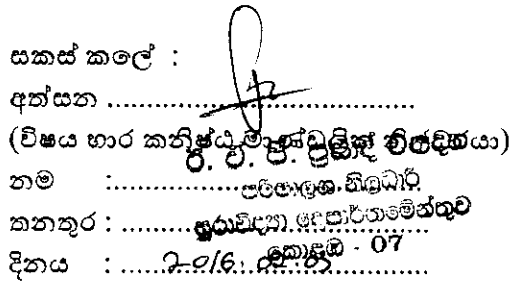 සකස් කලේ :
අත්සන ........................................
(විෂය භාර කනිෂ්ඨ මාණ්ඩලික නිලධාරියා)
නම :
පරිපාලන නිලධාරි
තනතුර :
පුරාවිද්‍යා දෙපාර්තමේන්තුව
කොළඹ - 07
දිනය : 2016.